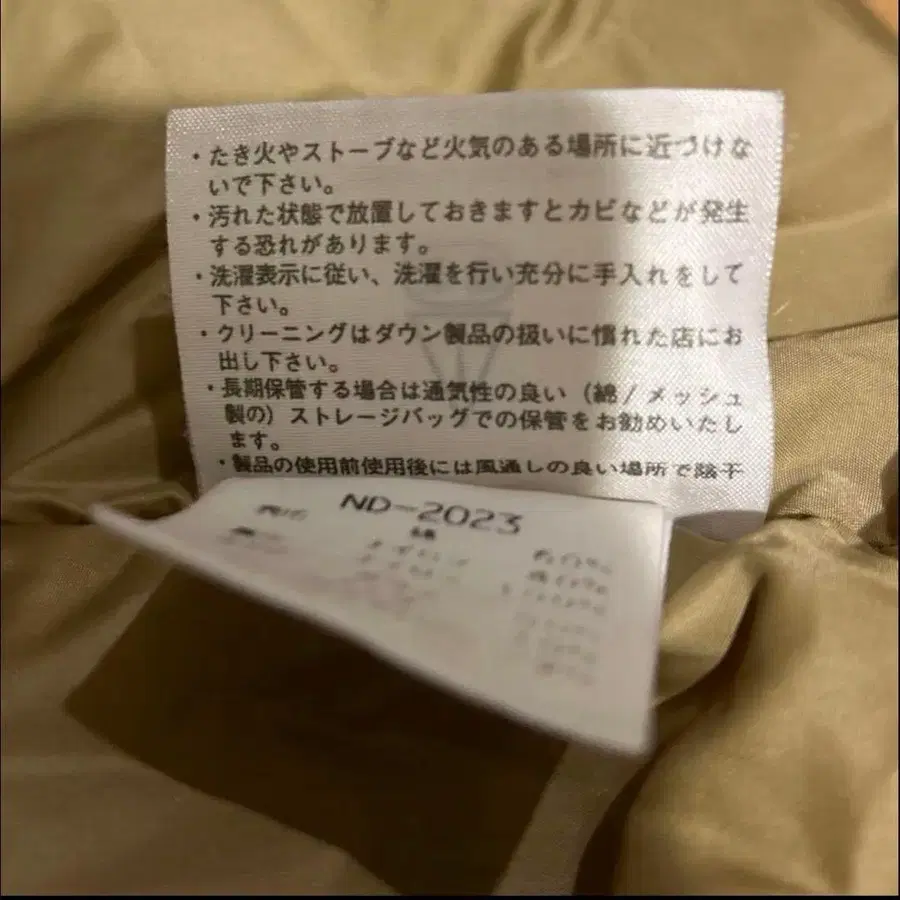 ・たき火やストーブなど火気のある場所に近づけな
いで下さい。
・汚れた状態で放置しておきますとカビなどが発生
する恐れがあります。
・洗濯表示に従い、洗濯を行い充分に手入れをして
下さい。
・クリーニングはダウン製品の扱いに慣れた店にお
出し下さい。
・長期保管する場合は通気性の良い（綿/メッシュ
製の）ストレージバッグでの保管をお勧めいたし
ます。
・製品の使用前使用後には風通しの良い場所で陰干
ND-2023
綿
60%